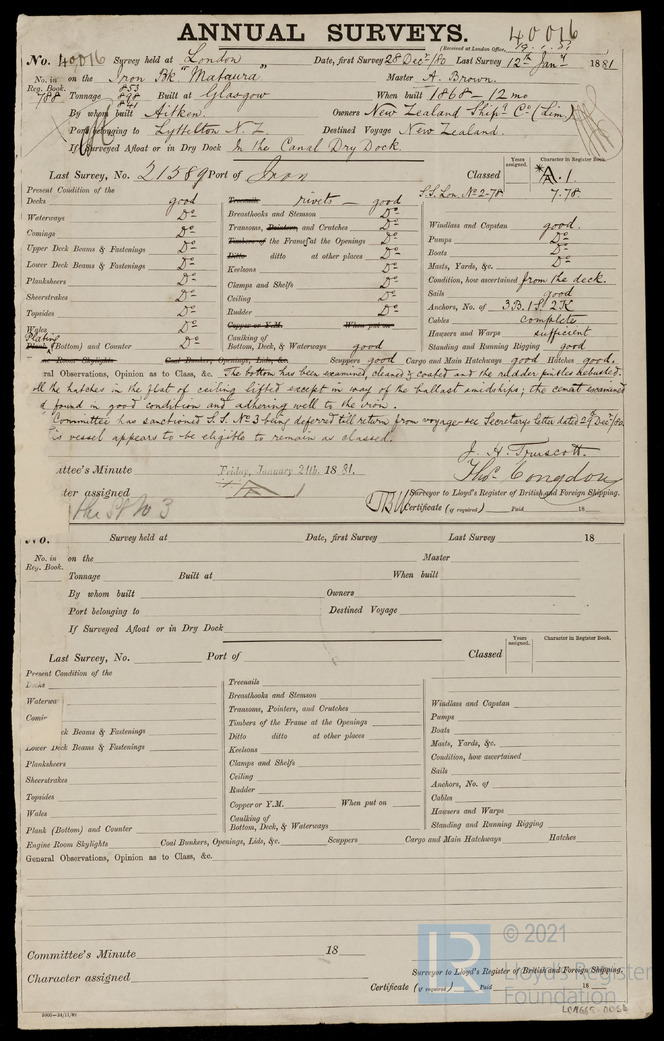 ANNUAL SURVEYS.
40016
(Received at London Office,
No. 40016 Survey held at London Date, first Survey 28 Decr/80 Last Survey 12th Jany 1881
No. in on the Iron Bk "Mataura" Master A. Brown.
Reg. Book. 853
788 Tonnage 898 Built at Glasgow When built 1868 - 12 mo
841
By whom built Aitken. Owners New Zealand Shipg Co (Lim.)
Port belonging to Lyttelton N.Z. Destined Voyage New Zealand.
If Surveyed Afloat or in Dry Dock In the Canal Dry Dock.
Years assigned. Character in Register Book.
Last Survey, No. 21589 Port of Iron Classed A.1.
S.S. Lon. No 2-78 7.78.
Present Condition of the
Decks good
Waterways Do
Comings Do
Upper Deck Beams & Fastenings Do
Lower Deck Beams & Fastenings Do
Planksheers Do
Sheerstrakes Do
Topsides Do
Wales Do
Plating
Plank (Bottom) and Counter Do
Treenails rivets — good
Breasthooks and Stemson Do
Transoms, Pointers, and Crutches Do
Timbers of the Frame at the Openings Do
Ditto ditto at other places Do
Keelsons Do
Clamps and Shelfs Do
Ceiling Do
Rudder Do
Copper or Y.M. When put on
Caulking of
Bottom, Deck, & Waterways good
Windlass and Capstan good.
Pumps Do
Boats Do
Masts, Yards, &c. Do
Condition, how ascertained from the deck.
Sails good
Anchors, No. of 3B. 1S. 2K
Cables complete
Hawsers and Warps sufficient
Standing and Running Rigging good
Room Skylights Coal Bunkers, Openings, Lids, &c. Scuppers good Cargo and Main Hatchways good Hatches good.
ral Observations, Opinion as to Class, &c. The bottom has been examined, cleaned & coated and the rudder pintles rebushed.
All the hatches in the flat of ceiling lifted except in way of the ballast amidships; the cement examined
& found in good condition and adhering well to the iron.
Committee has sanctioned S.S. No 3 being deferred till return from voyage - see Secretary's letter dated 29th Decr/80
is vessel appears to be eligible to remain as classed.
J. H. Truscott.
Thos. Congdon
ttee's Minute Friday, January 21th. 1881.
ter assigned
Surveyor to Lloyd's Register of British and Foreign Shipping.
Certificate (if required) Paid 18
No. Survey held at Date, first Survey Last Survey 18
No. in on the Master
Reg. Book.
Tonnage Built at When built
By whom built Owners
Port belonging to Destined Voyage
If Surveyed Afloat or in Dry Dock
Years assigned. Character in Register Book.
Last Survey, No. Port of Classed
Present Condition of the
Decks
Waterwa
Comin
ck Beams & Fastenings
Lower Deck Beams & Fastenings
Planksheers
Sheerstrakes
Topsides
Wales
Plank (Bottom) and Counter
Treenails
Breasthooks and Stemson
Transoms, Pointers, and Crutches
Timbers of the Frame at the Openings
Ditto ditto at other places
Keelsons
Clamps and Shelfs
Ceiling
Rudder
Copper or Y.M. When put on
Caulking of
Bottom, Deck, & Waterways
Windlass and Capstan
Pumps
Boats
Masts, Yards, &c.
Condition, how ascertained
Sails
Anchors, No. of
Cables
Hawsers and Warps
Standing and Running Rigging
Engine Room Skylights Coal Bunkers, Openings, Lids, &c. Scuppers Cargo and Main Hatchways Hatches
General Observations, Opinion as to Class, &c.
Committee's Minute 18
Character assigned
Surveyor to Lloyd's Register of British and Foreign Shipping.
Certificate (if required) Paid 18
© 2021
Lloyd's Register
Foundation